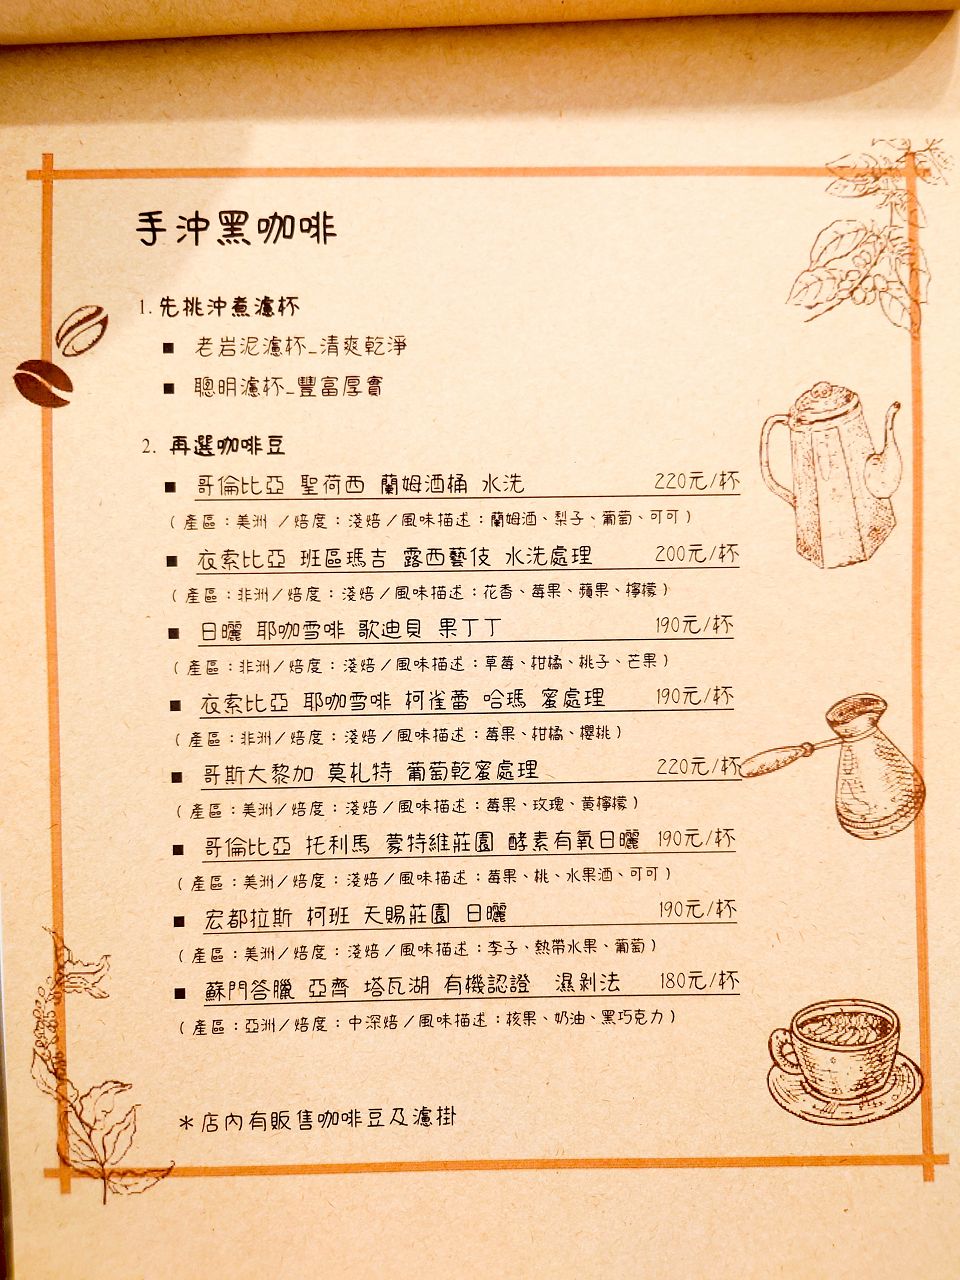 手沖黑咖啡
1. 先挑沖煮濾杯
■ 老岩泥濾杯_清爽乾淨
■ 聰明濾杯_豐富厚實
2. 再選咖啡豆
■ 哥倫比亞 聖荷西 蘭姆酒桶 水洗 220元/杯
(產區:美洲 /焙度:淺焙/風味描述:蘭姆酒、梨子、葡萄、可可)
■ 衣索比亞 班區瑪吉 露西藝伎 水洗處理 200元/杯
(產區:非洲/焙度:淺焙/風味描述:花香、莓果、蘋果、檸檬)
■ 日曬 耶咖雪啡 歌迪貝 果丁丁 190元/杯
(產區:非洲/焙度:淺焙/風味描述:草莓、柑橘、桃子、芒果)
■ 衣索比亞 耶咖雪啡 柯雀蕾 哈瑪 蜜處理 190元/杯
(產區:非洲/焙度:淺焙/風味描述:莓果、柑橘、櫻桃)
■ 哥斯大黎加 莫札特 葡萄乾蜜處理 220元/杯
(產區:美洲/焙度:淺焙/風味描述:莓果、玫瑰、黃檸檬)
■ 哥倫比亞 托利馬 蒙特維莊園 酵素有氧日曬 190元/杯
(產區:美洲/焙度:淺焙/風味描述:莓果、桃、水果酒、可可)
■ 宏都拉斯 柯班 天賜莊園 日曬 190元/杯
(產區:美洲/焙度:淺焙/風味描述:李子、熱帶水果、葡萄)
■ 蘇門答臘 亞齊 塔瓦湖 有機認證 濕剝法 180元/杯
(產區:亞洲/焙度:中深焙/風味描述:核果、奶油、黑巧克力)
*店內有販售咖啡豆及濾掛